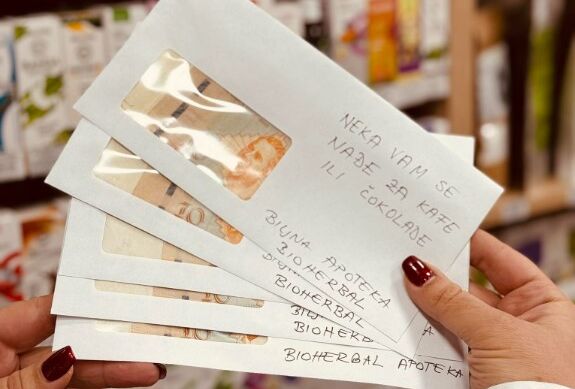 NEKA VAM SE
NAĐE ZA KAFE
ILI ČOKOLADE
BILJNA APOTEKA
BIOHERBAL
BIOHERBAL
BIOHERBAL
BIOHERBAL APOTEKA
10